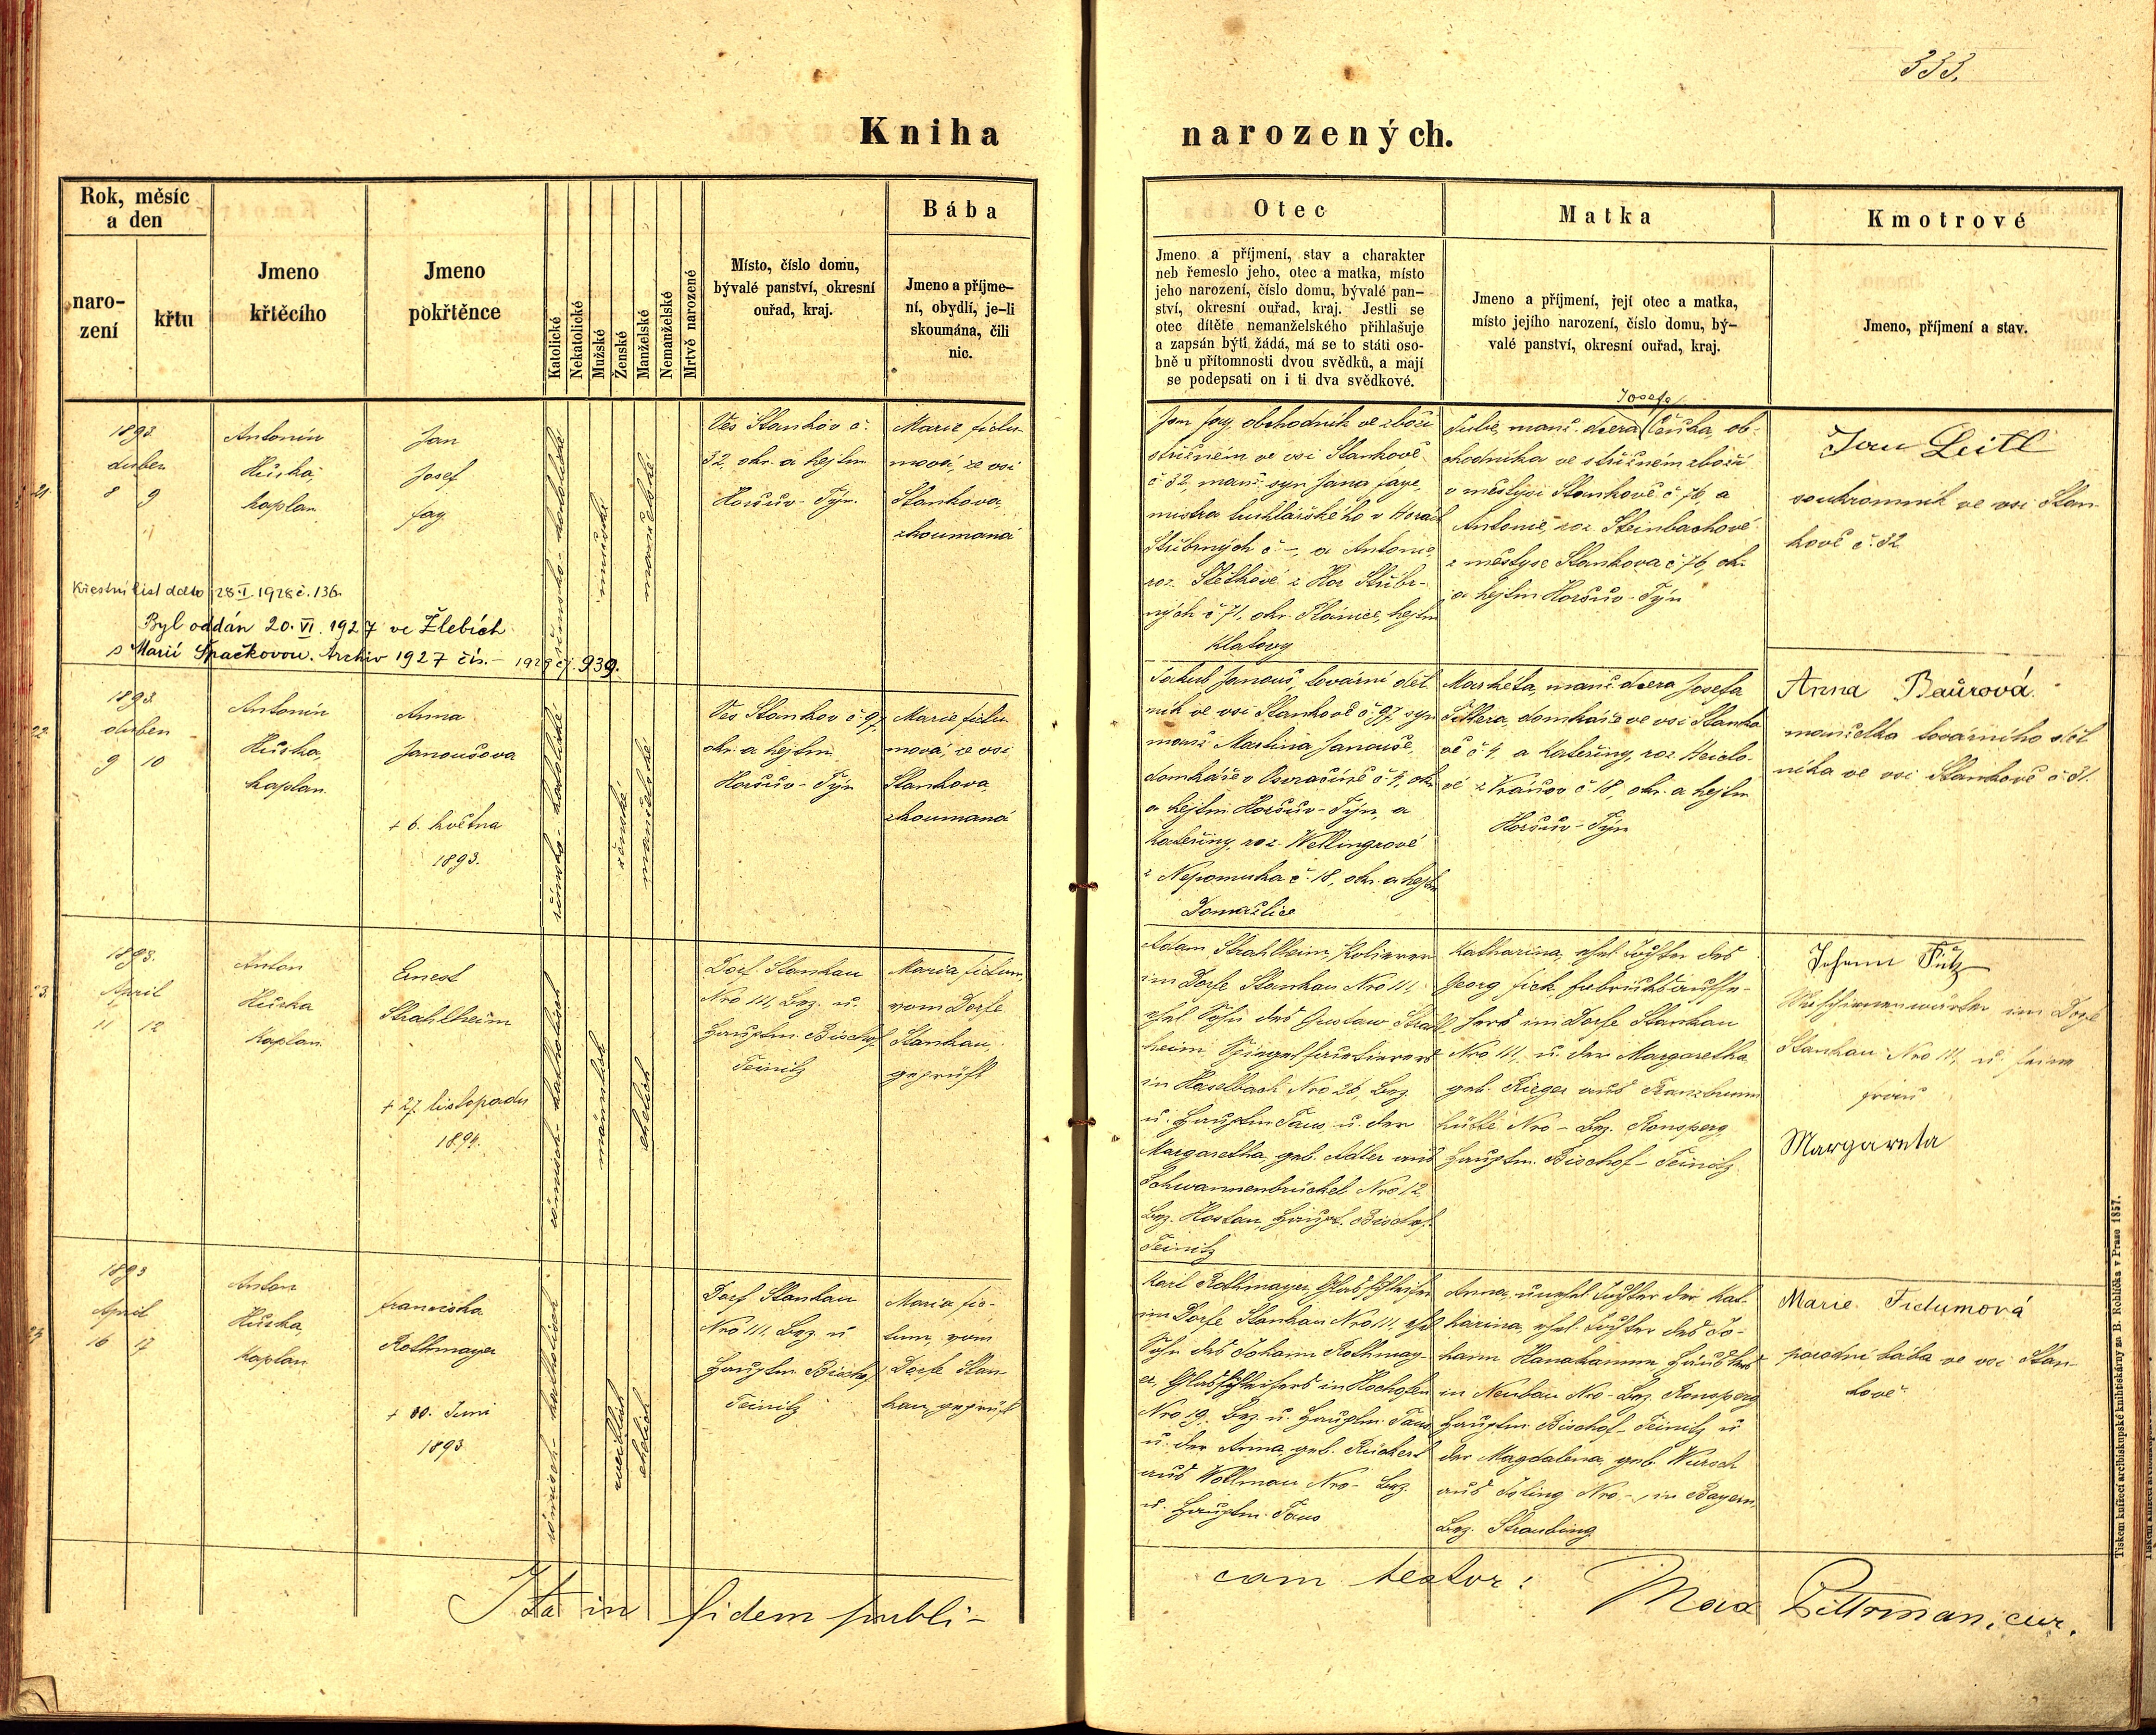 333.
Kniha narozených.
Rok, měsíc
a den
naro-
zení
křtu
Jmeno
křtěcího
Jmeno
pokřtěnce
Katolické
Nekatolické
Mužské
Ženské
Manželské
Nemanželské
Mrtvě narozené
Místo, číslo domu,
bývalé panství, okresní
ouřad, kraj.
Bába
Jmeno a příjme-
ní, obydlí, je-li
skoumána, čili
nic.
Otec
Jmeno a příjmení, stav a charakter
neb řemeslo jeho, otec a matka, místo
jeho narození, číslo domu, bývalé pan-
ství, okresní ouřad, kraj. Jestli se
otec dítěte nemanželského přihlašuje
a zapsán býti žádá, má se to státi oso-
bně u přítomnosti dvou svědků, a mají
se podepsati on i ti dva svědkové.
Matka
Jmeno a příjmení, její otec a matka,
místo jejího narození, číslo domu, bý-
valé panství, okresní ouřad, kraj.
Kmotrové
Jmeno, příjmení a stav.
21
1893
duben
8 9
Antonín
Hůrka,
kaplan
Jan
Josef
Jag
římsko-katolické
mužské
manželské
Ves Staňkov č.
32, okr. a hejtm.
Horšův-Týn.
Marie Fidu-
mová, ze vsi
Staňkova,
zkoumaná
Křestní list dato 28.I.1928 č. 136.
Byl oddán 20. VI. 1927 ve Žlebích
s Marií Špačkovou. Archiv 1927 čís. - 1929 čj. 939.
Jan Jag, obchodník ve zboží
střižném ve vsi Staňkově
č 32, manž. syn Jana Jaga,
mistra truhlářského v Horách
Stříbrných č. -, a Antonie,
roz. Stetkové z Hor Stříbr-
ných č 71, okr. Plánice, hejtm
Klatovy
Josefa
Julie, manž. dcera Čeňka, ob-
chodníka ve střižném zboží
v městysi Staňkově č 76, a
Antonie, roz. Steinbachové
z městyse Staňkova č 76, okr.
a hejtm Horšův-Týn
Jan Leitl
soukromník ve vsi Staň-
kově č. 32
22
1893
duben
9 10
Antonín
Hůrka,
kaplan.
Anna
Janoušova
+ 6. května
1893.
římsko-katolické
ženské
manželské
Ves Staňkov č 97,
okr. a hejtm.
Horšův-Týn
Marie Fidu-
mová, ze vsi
Staňkova
zkoumaná
Jakub Janouš, tovární děl
ník ve vsi Staňkově č. 97, syn
manž Martina Janouše,
domkáře v Osvračíně č. 4, okr.
a hejtm Horšův-Týn, a
Kateřiny, roz. Wellingrové
z Nepomuka č. 18, okr. a hejtm
Domažlice
Markéta, manž dcera Josefa
Tittera, domkáře ve vsi Staňko
vě č 4, a Kateřiny, roz. Heidlo-
vé z Vránov č 18, okr. a hejtm
Horšův-Týn
Anna Baürová.
manželka továrního děl
níka ve vsi Staňkově č 31.
23.
1893.
April
11 12
Anton
Hůrka
Kaplan.
Ernest
Strahlheim
+ 27. listopadu
1894.
römisch-katholisch
männlich
ehelich
Dorf Stankau
Nro 111, Bez. u.
Hauptm. Bischof
Teinitz
Maria Fidum,
vom Dorfe
Stankau
geprüft
Adam Strahlheim, Polierer
im Dorfe Stankau Nro 111,
ehel. Sohn des Gustav Strahl
heim, Spiegelfacetierers
in Haselbach Nro 26, Bez.
u. Hauptm Taus u. der
Margaretha, geb. Adler aus
Schwannenbrückel Nro 12
Bez. Hostau, Haupt. Bischof-
Teinitz
Katharina, ehel. Tochter des
Georg Fick, Fabriksaufse-
hers im Dorfe Stankau
Nro 111, u. der Margaretha
geb. Rieger aus Franzbrunn
hütte Nro - Bez. Ronsperg
Hauptm. Bischof-Teinitz.
Johann Pütz
Maschienenwärter im Dorfe
Stankau Nro 111, u. seine
Frau
Margareta
24
1893
April
16 17
Anton
Hůrka,
Kaplan
Franziska
Rothmayer
+ 30. Juni
1893
römisch-katholisch
weiblich
ehelich
Dorf Stankau
Nro 111, Bez. u
Hauptm Bischof
Teinitz
Maria Fi-
dum, vom
Dorfe Stan
kau, geprüft
Karl Rothmayer, Glasschleifer
im Dorfe Stankau Nro 111, ehel
Sohn des Johann Rothmay-
er, Glasschleifers in Hochofen
Nro 19. Bez. u. Hauptm. Taus
u. der Anna, geb. Rückerl
aus Vollmau Nro - Bez.
u. Hauptm. Taus
Anna, unehel. Tochter der Kat-
harina, ehel. Tochter des Jo-
hann Hanakamm, Häuslers
in Neubau Nro - Bez. Ronsperg
Hauptm. Bischof-Teinitz u
der Magdalena, geb. Wursch
aus Isling Nro -, in Bayern,
Bez. Straubing
Marie Fidumová
porodní bába ve vsi Staň-
kově
Ita in fidem publi-
cam testor: Max Pittrman, cur.
Tiskem knížecí arcibiskupské knihtiskárny za B. Rohlíčka v Praze 1857.